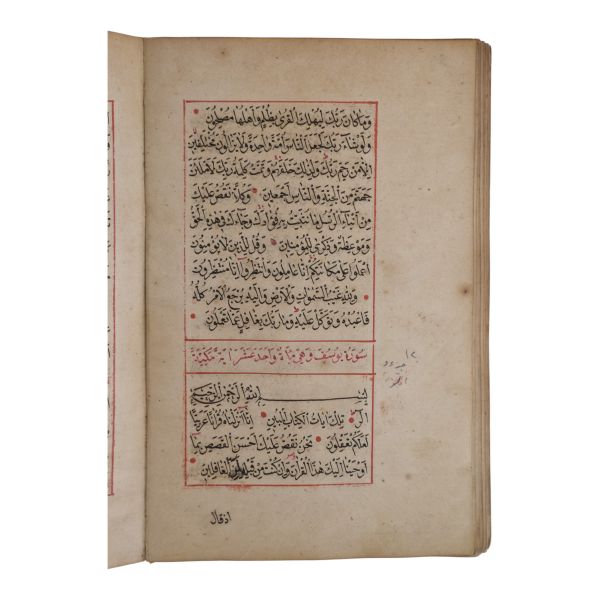 وَمَا كَانَ رَبُّكَ لِيُهْلِكَ الْقُرٰى بِظُلْمٍ وَاَهْلُهَا مُصْلِحُونَ
وَلَوْ شَاءَ رَبُّكَ لَجَعَلَ النَّاسَ اُمَّةً وَاحِدَةً وَلَا يَزَالُونَ مُخْتَلِفِينَ
اِلَّا مَنْ رَحِمَ رَبُّكَ وَلِذٰلِكَ خَلَقَهُمْ وَتَمَّتْ كَلِمَةُ رَبِّكَ لَاَمْلَاَنَّ
جَهَنَّمَ مِنَ الْجِنَّةِ وَالنَّاسِ اَجْمَعِينَ وَكُلًّا نَقُصُّ عَلَيْكَ
مِنْ اَنْبَاءِ الرُّسُلِ مَا نُثَبِّتُ بِهِ فُؤَادَكَ وَجَاءَكَ فِي هٰذِهِ الْحَقُّ
وَمَوْعِظَةٌ وَذِكْرٰى لِلْمُؤْمِنِينَ وَقُلْ لِلَّذِينَ لَا يُؤْمِنُونَ
اعْمَلُوا عَلٰى مَكَانَتِكُمْ اِنَّا عَامِلُونَ وَانْتَظِرُوا اِنَّا مُنْتَظِرُونَ
وَلِلّٰهِ غَيْبُ السَّمٰوَاتِ وَالْاَرْضِ وَاِلَيْهِ يُرْجَعُ الْاَمْرُ كُلُّهُ
فَاعْبُدْهُ وَتَوَكَّلْ عَلَيْهِ وَمَا رَبُّكَ بِغَافِلٍ عَمَّا تَعْمَلُونَ
سُورَةُ يُوسُفَ وَهِيَ مِائَة وَاحِد عَشَر اية مَكِّيَّة
١٢
بِسْمِ اللّٰهِ الرَّحْمٰنِ الرَّحِيمِ
الٓرٰ تِلْكَ اٰيَاتُ الْكِتَابِ الْمُبِينِ اِنَّا اَنْزَلْنَاهُ قُرْاٰنًا عَرَبِيًّا
لَعَلَّكُمْ تَعْقِلُونَ نَحْنُ نَقُصُّ عَلَيْكَ اَحْسَنَ الْقَصَصِ بِمَا
اَوْحَيْنَا اِلَيْكَ هٰذَا الْقُرْاٰنَ وَاِنْ كُنْتَ مِنْ قَبْلِهِ لَمِنَ الْغَافِلِينَ
اذ قال